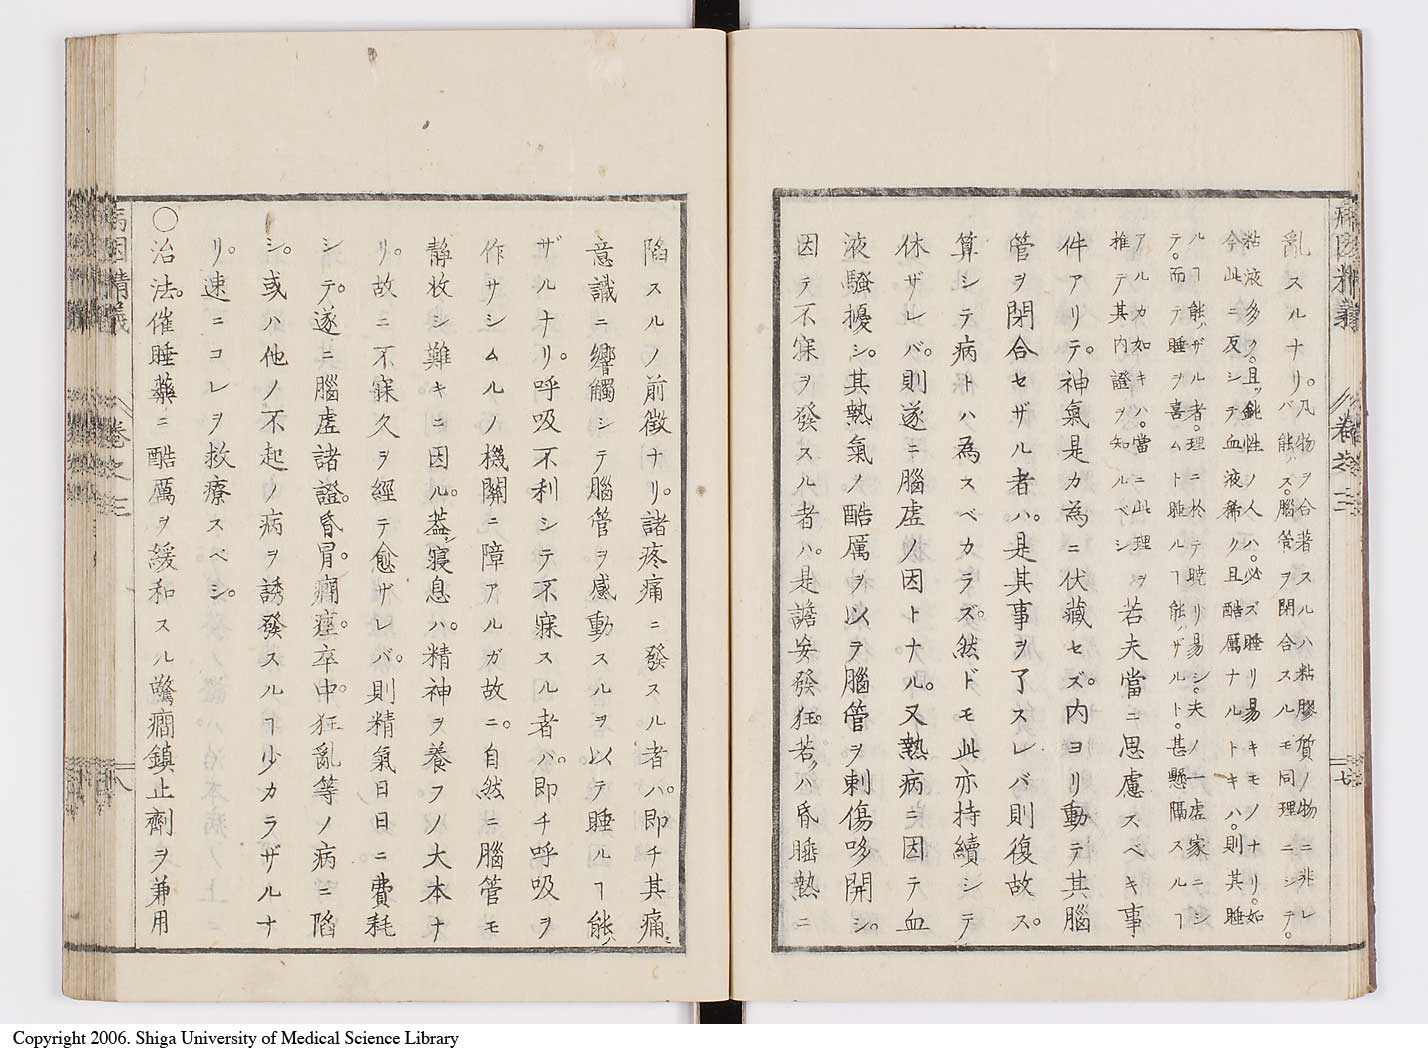 病因精義
卷之三
七
亂スルナリ。凡物ヲ合著スルハ粘膠質ノ物ニ非レ
バ能ハズ。腦管ヲ閉合スルモ同理ニシテ。
粘液多ク。且ツ鈍性ノ人ハ。必ズ睡リ易キモノナリ。如
今此ニ反シテ血液稀ク且酷厲ナルトキハ。則其睡
ルヿ能ハザル者。理ニ於テ曉リ易シ。夫ノ一虚家ニシ
テ。而テ睡ヲ喜ムト睡ルヿ能ハザルト。甚懸隔スルヿ
アルカ如キハ。當ニ此理ヲ
推テ其内證ヲ知ルベシ
若夫當ニ思慮スベキ事
件アリテ。神氣是カ為ニ伏藏セズ。内ヨリ動テ其腦
管ヲ閉合セザル者ハ。是其事ヲ了スレバ則復故ス。
算シテ病トハ為スベカラズ。然ドモ此亦持續シテ
休ザレバ。則遂ニ腦虚ノ因トナル。又熱病ニ因テ血
液騷擾シ。其熱氣ノ酷厲ヲ以テ腦管ヲ刺傷哆開シ。
因テ不寐ヲ發スル者ハ。是譫妄發狂。若クハ昏睡熱ニ
陷スルノ前徴ナリ。諸疼痛ニ發スル者ハ。即チ其痛ミ
意識ニ響觸シテ腦管ヲ感動スルヲ以テ睡ルヿ能ハ
ザルナリ。呼吸不利シテ不寐スル者ハ。即チ呼吸ヲ
作サシムルノ機關ニ障アルガ故ニ。自然ニ腦管モ
静收シ難キニ因ル。蓋シ寢息ハ。精神ヲ養フノ大本ナ
リ。故ニ不寐久ヲ經テ愈ザレバ。則精氣日日ニ費耗
シテ。遂ニ腦虚諸證。昏冒。癇痙。卒中。狂亂等ノ病ニ陷
シ。或ハ他ノ不起ノ病ヲ誘發スルヿ少カラザルナ
リ。速ニコレヲ救療スベシ。
○治法。催睡藥ニ酷厲ヲ緩和スル驚癇鎮止劑ヲ兼用
病因精義
卷之三
八
Copyright 2006. Shiga University of Medical Science Library